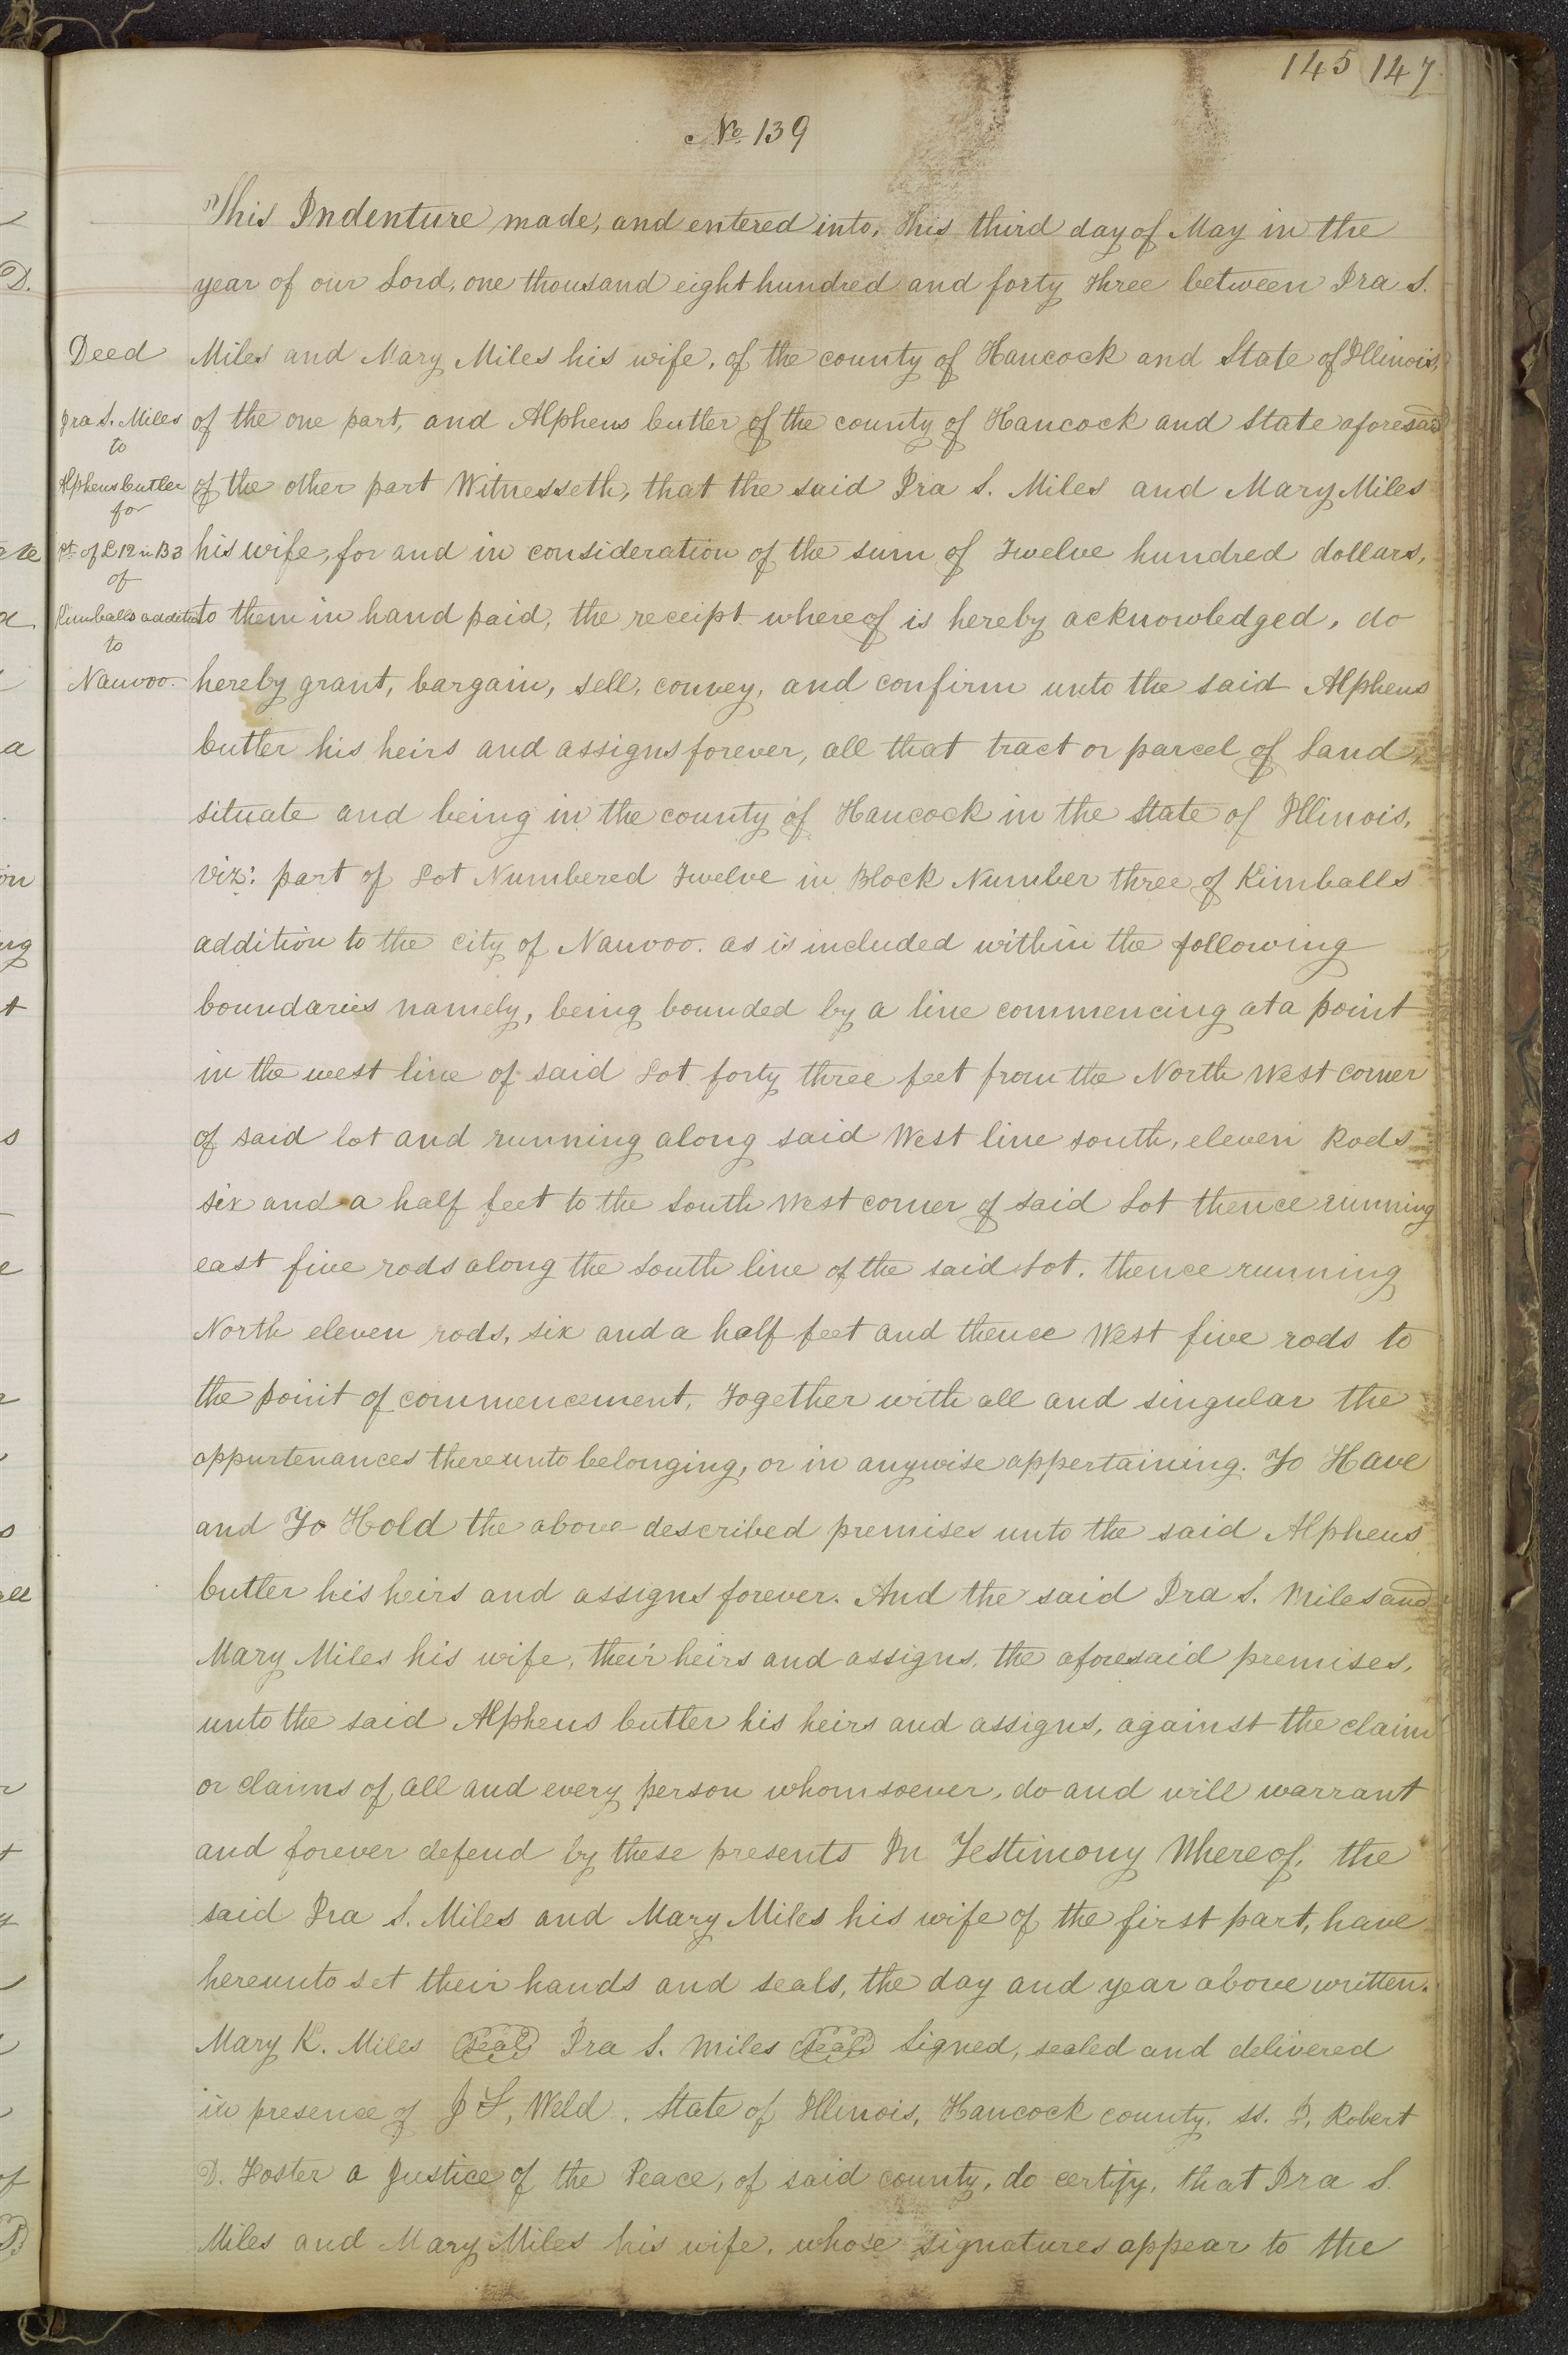 145 147
No 139
This Indenture made, and entered into, this third day of May in the
year of our Lord, one thousand eight hundred and forty three between Ira S.
Deed
Miles and Mary Miles his wife, of the county of Hancock and State of Illinois,
Ira S. Miles
of the one part, and Alpheus Cutler of the county of Hancock and State aforesaid
to
Alpheus Cutler
of the other part Witnesseth, that the said Ira S. Miles and Mary Miles
for
pt of L 12 in B 3
his wife, for and in consideration of the sum of Twelve hundred dollars,
of
Kimballs addition
to them in hand paid, the receipt whereof is hereby acknowledged, do
to
Nauvoo.
hereby grant, bargain, sell, convey, and confirm unto the said Alpheus
Cutler his heirs and assigns forever, all that tract or parcel of Land,
situate and being in the county of Hancock in the State of Illinois,
viz: part of Lot Numbered Twelve in Block Number three of Kimballs
addition to the city of Nauvoo. as is included within the following
boundaries namely, being bounded by a line commencing at a point
in the west line of said Lot forty three feet from the North West corner
of said lot and running along said West line south, eleven Rods
six and a half feet to the South West corner of said Lot thence running
east five rods along the South line of the said Lot. thence running
North eleven rods, six and a half feet and thence West five rods to
the point of commencement, Together with all and singular the
appurtenances thereunto belonging, or in anywise appertaining. To Have
and To Hold the above described premises unto the said Alpheus
Cutler his heirs and assigns forever. And the said Ira S. Miles and
Mary Miles his wife, their heirs and assigns, the aforesaid premises,
unto the said Alpheus Cutler his heirs and assigns, against the claim
or claims of all and every person whomsoever, do and will warrant
and forever defend by these presents In Testimony Whereof, the
said Ira S. Miles and Mary Miles his wife of the first part, have
hereunto set their hands and seals, the day and year above written.
Mary K. Miles Seal Ira S. Miles Seal Signed, sealed and delivered
in presence of J S, Weld. State of Illinois, Hancock county. ss. I, Robert
D. Foster a Justice of the Peace, of said county, do certify, that Ira S.
Miles and Mary Miles his wife, whose signatures appear to the